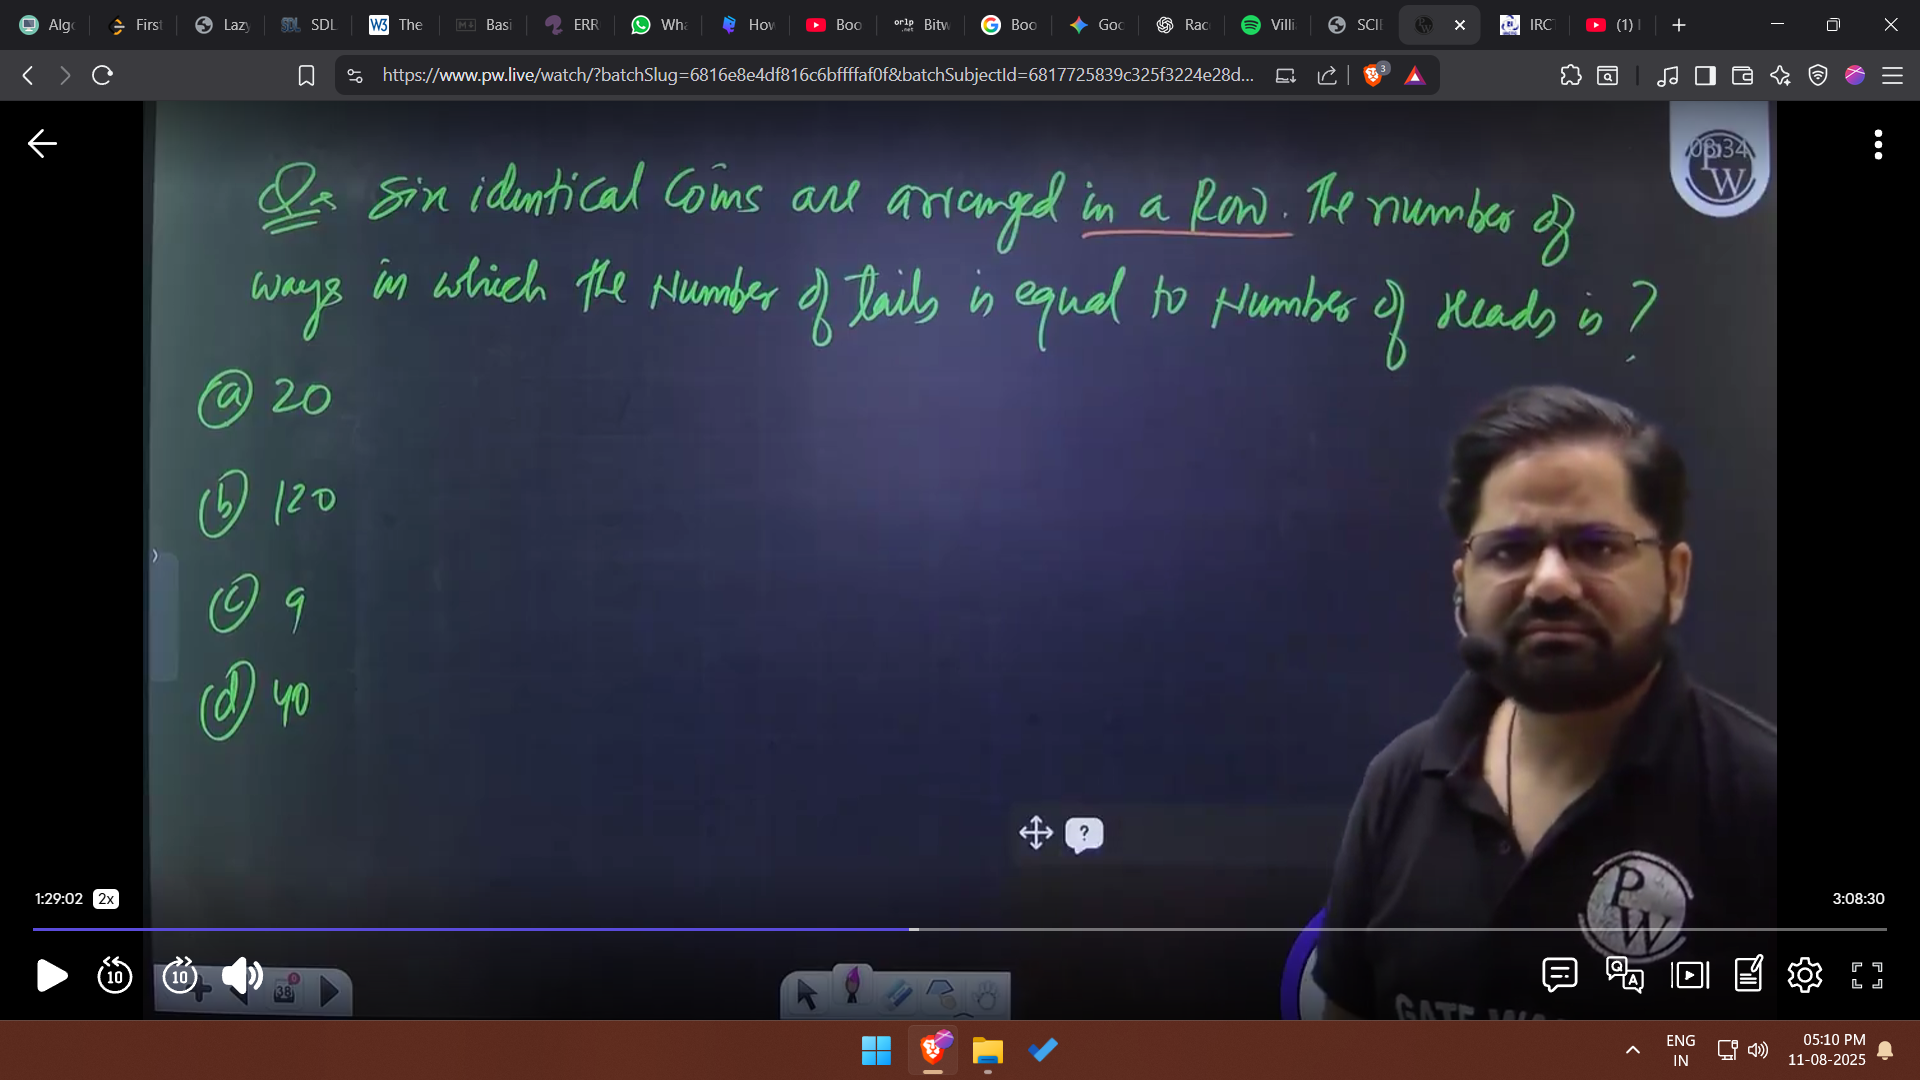 Algo
First
Lazy
SDL
The
Basi
ERR
Wha
How
Boo
Bitw
Boo
Goo
Rac
Villi
SCIE
IRCT
(1)
https://www.pw.live/watch/?batchSlug=6816e8e4df816c6bffffaf0f&batchSubjectId=6817725839c325f3224e28d...
3
03:34
PW
Q× Six identical Coins are arranged in a Row. The number of
ways in which the Number of tails is equal to Number of Heads is ?
(a) 20
(b) 120
(c) 9
(d) 40
?
PW
1:29:02 2x
3:08:30
10
10
38
Q
A
ENG
IN
05:10 PM
11-08-2025